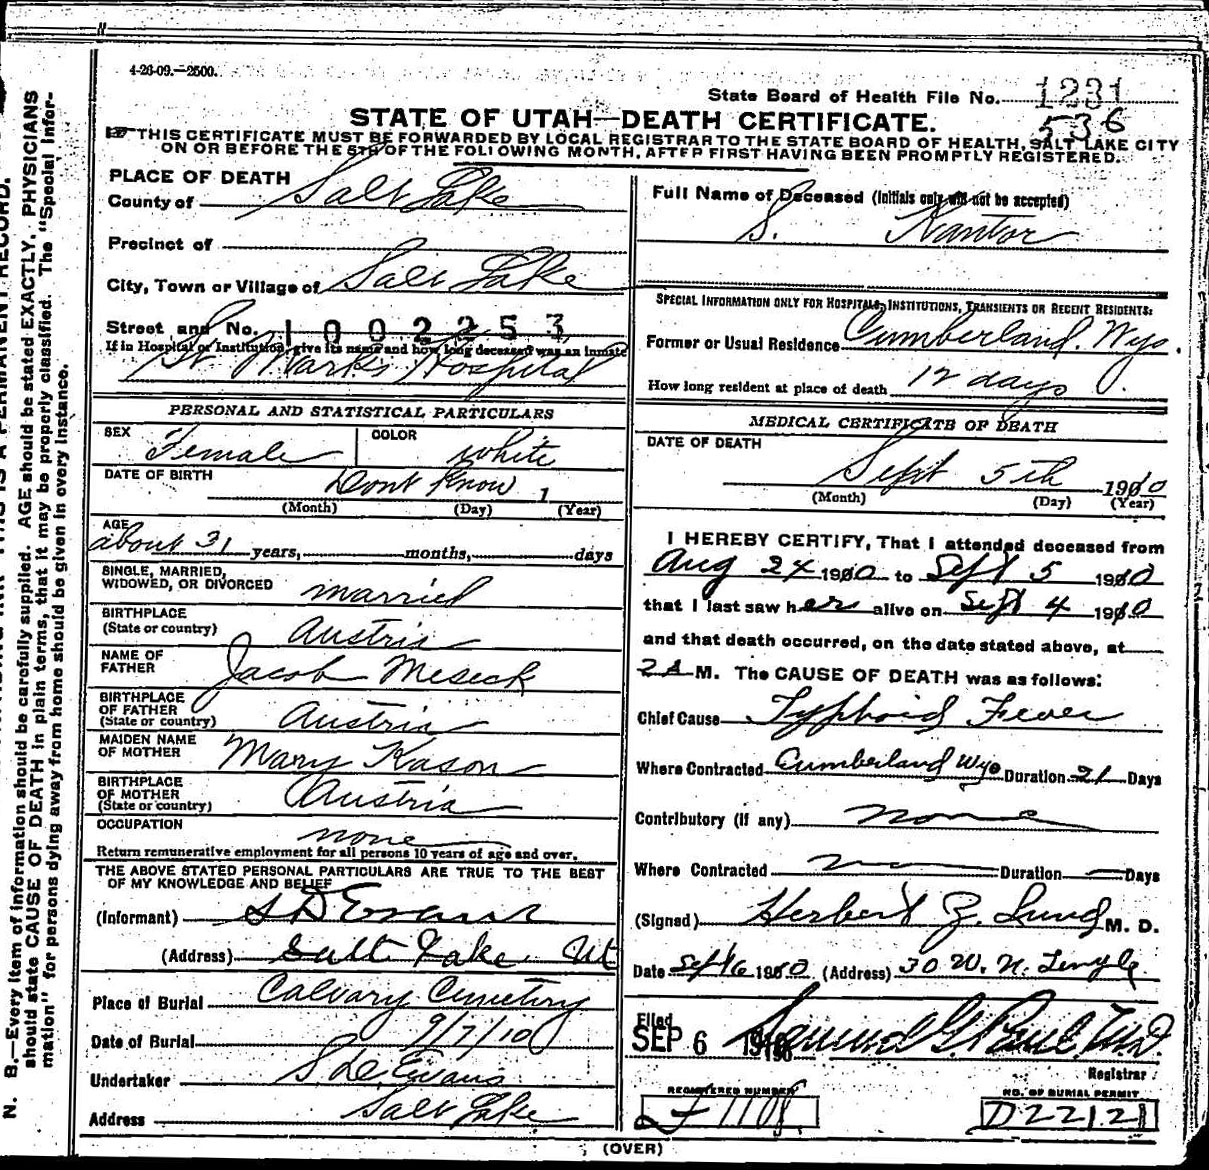 4-26-09.—2500.
State Board of Health File No. 1231
536
STATE OF UTAH—DEATH CERTIFICATE.
THIS CERTIFICATE MUST BE FORWARDED BY LOCAL REGISTRAR TO THE STATE BOARD OF HEALTH, SALT LAKE CITY
ON OR BEFORE THE 5TH OF THE FOLLOWING MONTH, AFTER FIRST HAVING BEEN PROMPTLY REGISTERED.
PLACE OF DEATH
County of Salt Lake
Precinct of
City, Town or Village of Salt Lake
Street and No. 1002253
If in Hospital or Institution, give its name and how long deceased was an inmate
St. Mark's Hospital
PERSONAL AND STATISTICAL PARTICULARS
SEX Female COLOR white
DATE OF BIRTH Dont Know 1
(Month) (Day) (Year)
AGE about 31 years, months, days
SINGLE, MARRIED,
WIDOWED, OR DIVORCED married
BIRTHPLACE
(State or country) Austria
NAME OF
FATHER Jacob Meseck
BIRTHPLACE
OF FATHER
(State or country) Austria
MAIDEN NAME
OF MOTHER Mary Kason
BIRTHPLACE
OF MOTHER
(State or country) Austria
OCCUPATION none
Return remunerative employment for all persons 10 years of age and over.
THE ABOVE STATED PERSONAL PARTICULARS ARE TRUE TO THE BEST
OF MY KNOWLEDGE AND BELIEF
(Informant) S D Evans
(Address) Salt Lake Ut
Place of Burial Calvary Cemetery
Date of Burial 9/7/10
Undertaker S. D. Evans
Address Salt Lake
Full Name of Deceased (Initials only will not be accepted)
S. Kantor
SPECIAL INFORMATION ONLY FOR HOSPITALS, INSTITUTIONS, TRANSIENTS OR RECENT RESIDENTS:
Former or Usual Residence Cumberland. Wyo.
How long resident at place of death 12 days
MEDICAL CERTIFICATE OF DEATH
DATE OF DEATH
Sept 5th 1910
(Month) (Day) (Year)
I HEREBY CERTIFY, That I attended deceased from
Aug 24 1910 to Sept 5 1910
that I last saw her alive on Sept 4 1910
and that death occurred, on the date stated above, at
2 A M. The CAUSE OF DEATH was as follows:
Chief Cause Typhoid Fever
Where Contracted Cumberland Wyo Duration 21 Days
Contributory (if any) none
Where Contracted Duration Days
(Signed) Herbert Z. Lund M. D.
Date Sept 6 1910 (Address) 30 W. N. Temple
Filed
SEP 6 1910 Samuel G. Paul, M.D.
Registrar
REGISTERED NUMBER
F 1108
NO. OF BURIAL PERMIT
D22121
(OVER)
N. B.—Every item of information should be carefully supplied. AGE should be stated EXACTLY. PHYSICIANS
should state CAUSE OF DEATH in plain terms, that it may be properly classified. The "Special Infor-
mation" for persons dying away from home should be given in every instance.